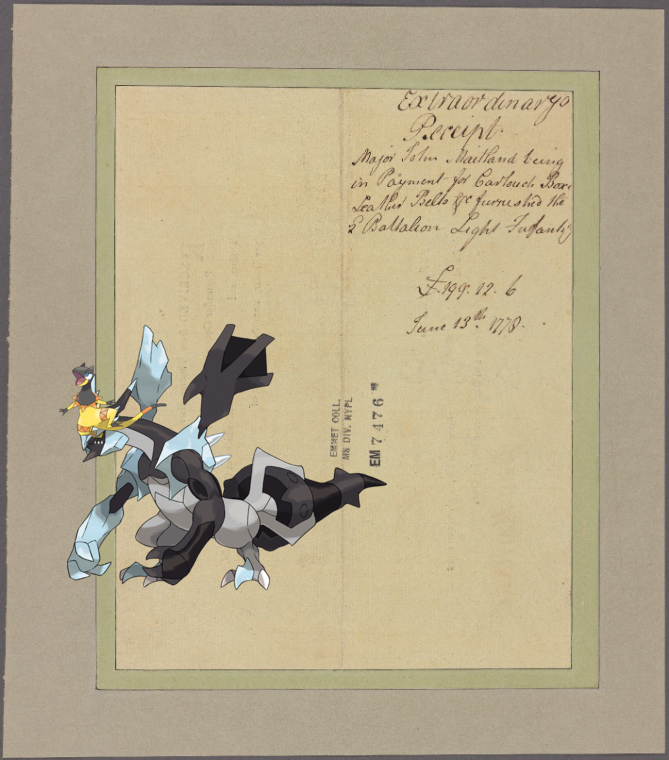 Extraordinarys
Receipt.
Major John Maitland being
in Payment for Cartouch Boxes
Leather Belts &c furnished the
2 Battalion Light Infantry
£.199.12.6
June 13th 1778.
EMMET COLL.
MS DIV. NYPL
EM 7476